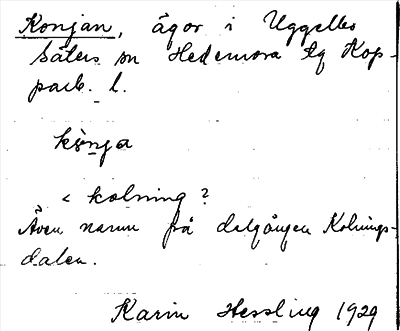 Konjan, ägor i Uggelbo
Säters sn Hedemora tg Kop-
parb. l.
kò̀nja
< kolning?
Även namn på dalgången Kolnings-
dalen.
Karin Hessling 1929